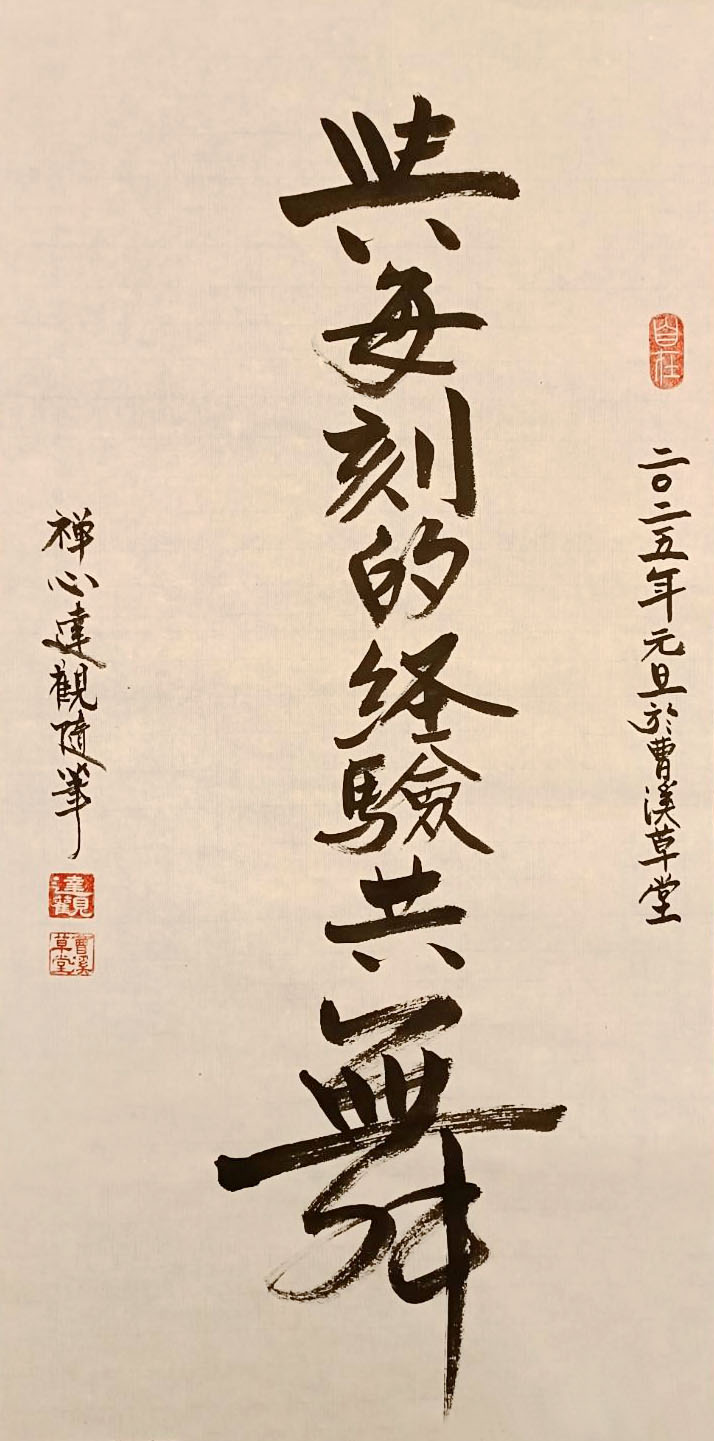 自在
二〇二五年元旦於曹溪草堂
與每刻的経驗共舞
禅心達觀隨筆
達觀
曹溪草堂